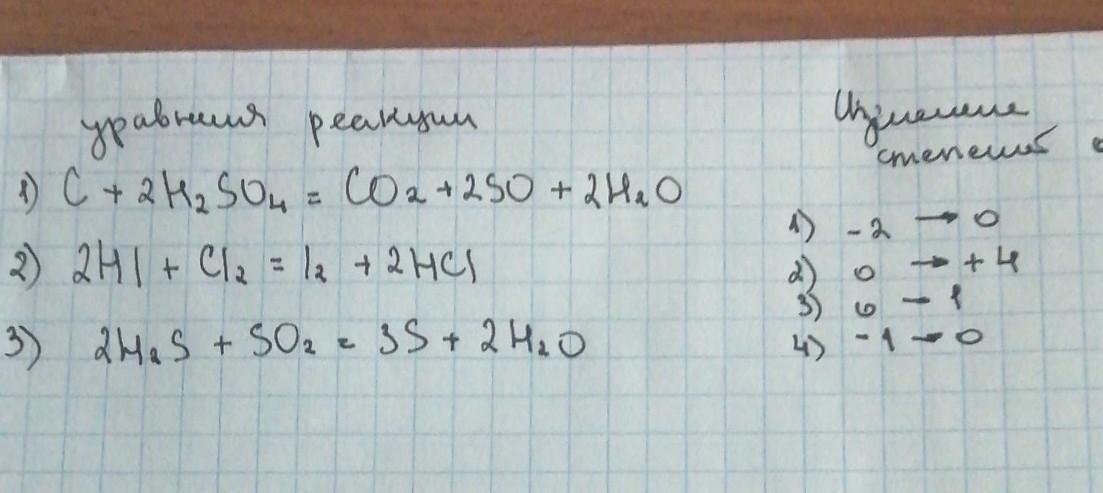 уравниия реакции
1) C + 2H₂SO₄ = CO₂ + 2SO + 2H₂O
2) 2HI + Cl₂ = I₂ + 2HCl
3) 2H₂S + SO₂ = 3S + 2H₂O
Изменение
степений
1) -2 → 0
2) 0 → +4
3) 0 - 1
4) -1 → 0